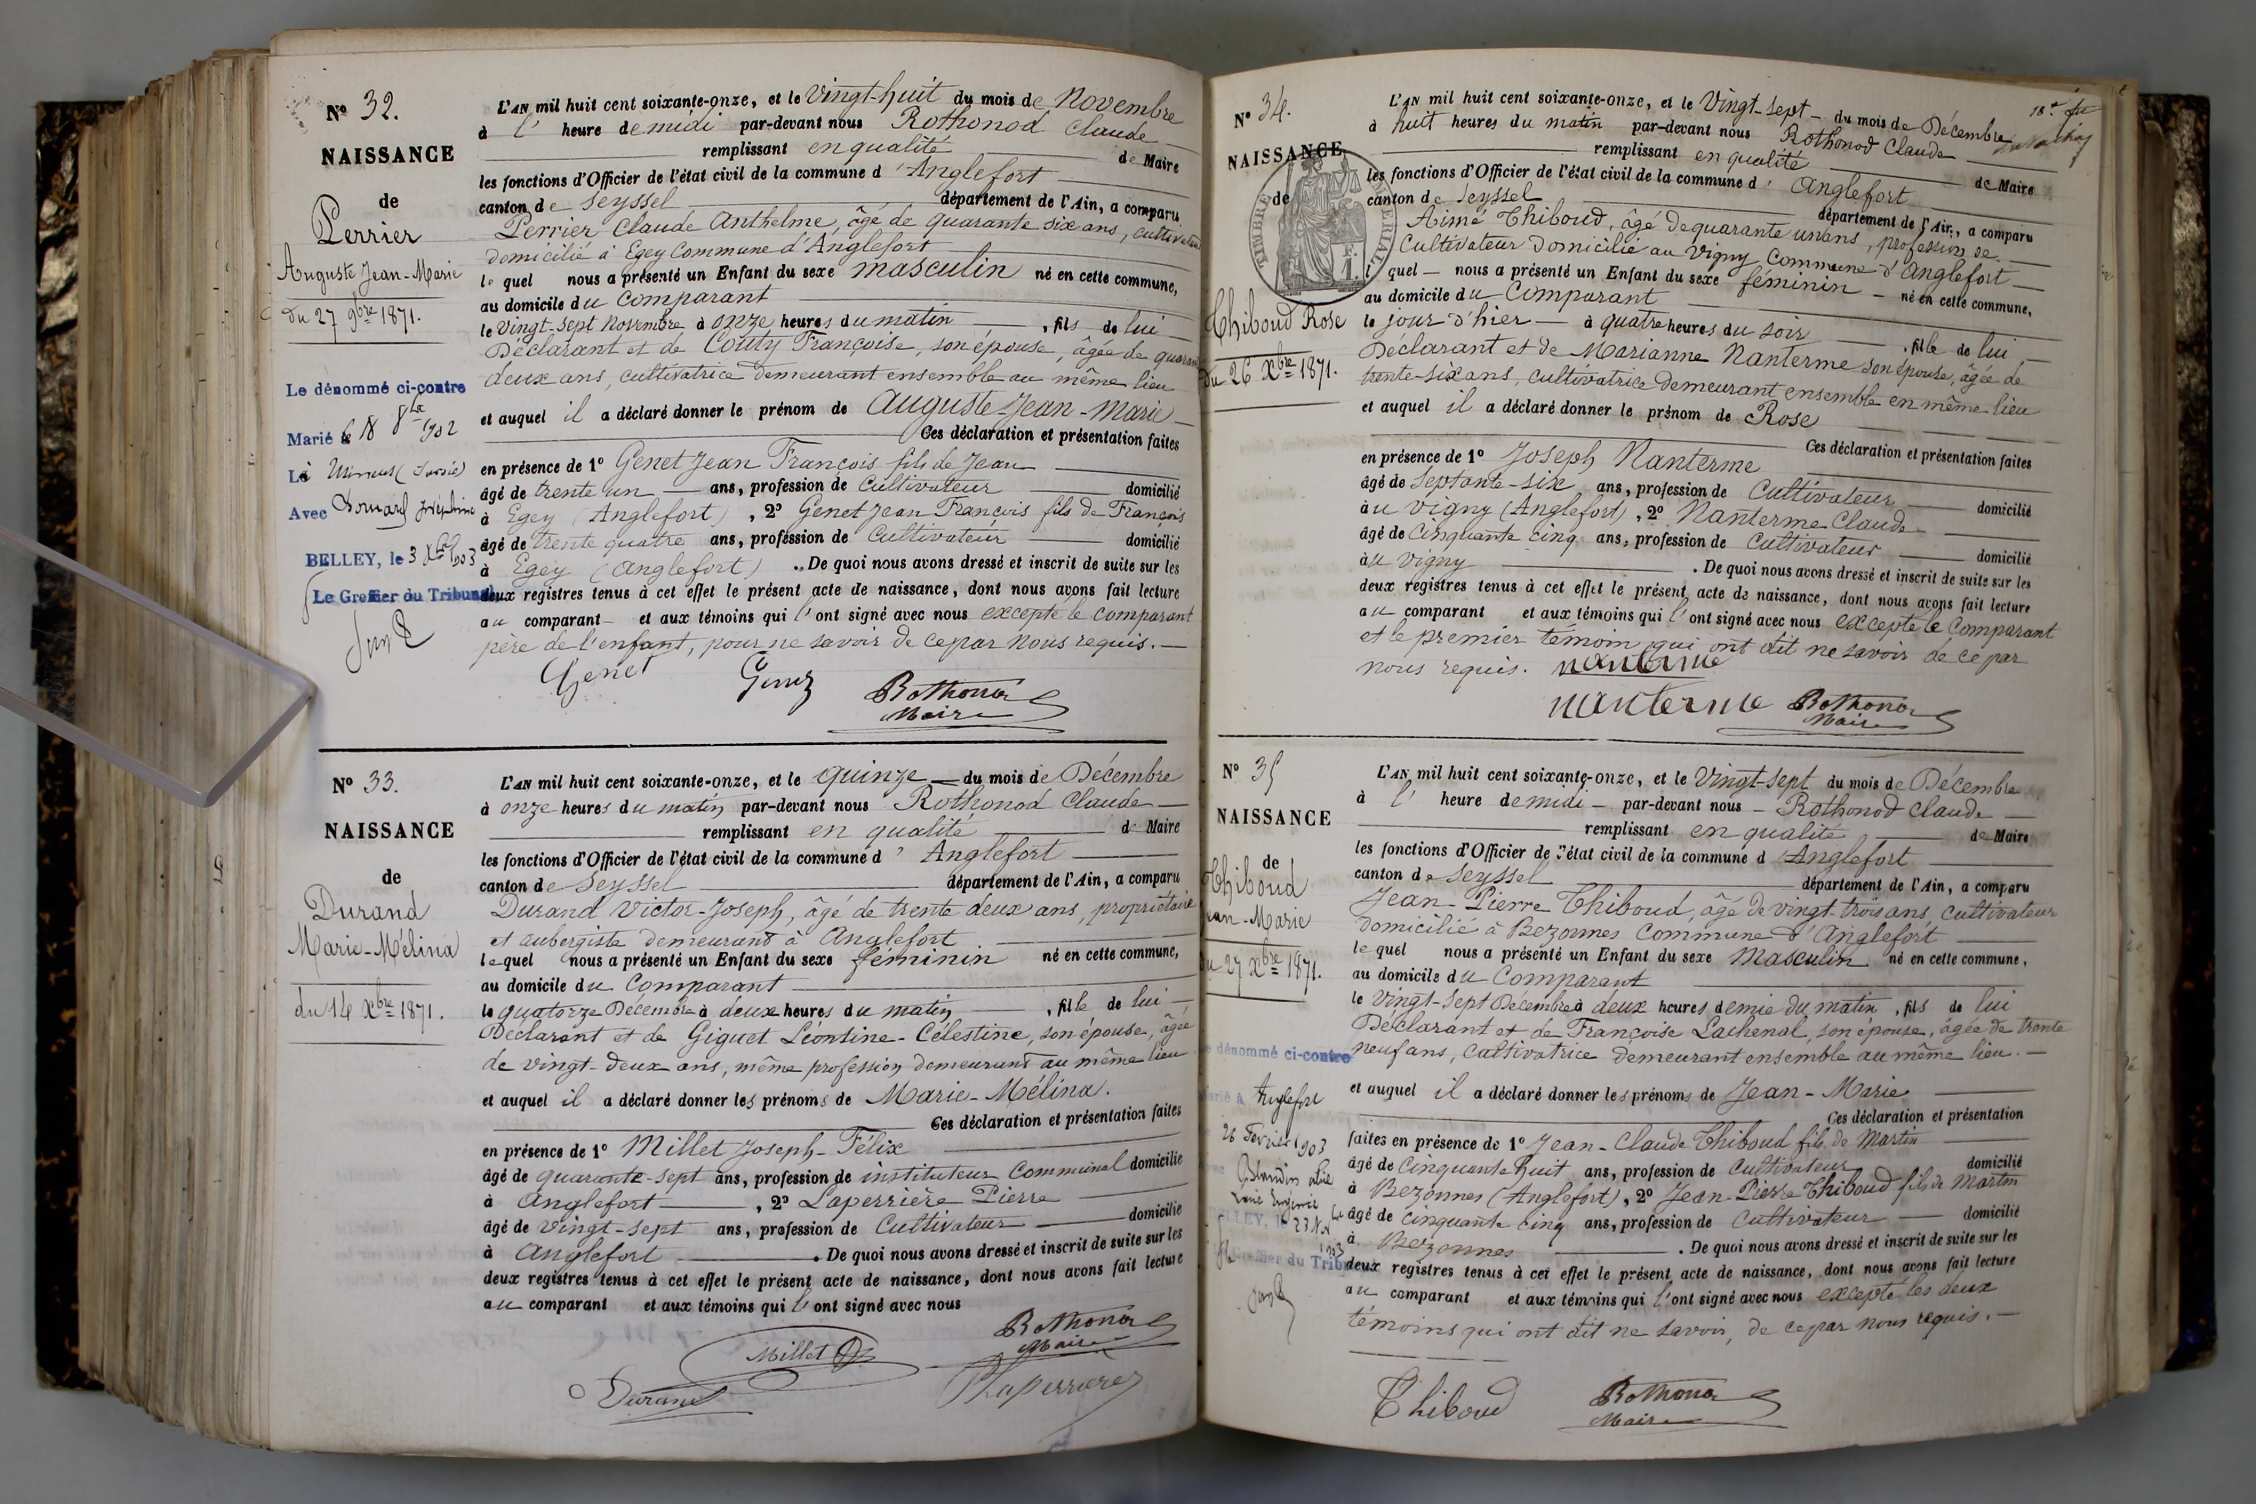 N° 32.
NAISSANCE
de
Perrier
Auguste Jean-Marie
du 27 9bre 1871.
Le dénommé ci-contre
Marié le 18 8bre 1902
Là
Avec Joséphine
BELLEY, le 3 Xbre 1903
Le Greffier du Tribunal
L'AN mil huit cent soixante-onze, et le Vingt-huit du mois de Novembre
à l' heure de midi par-devant nous Rothonod Claude
remplissant en qualité de Maire
les fonctions d'Officier de l'état civil de la commune d'Anglefort
canton de Seyssel département de l'Ain, a comparu
Perrier Claude Anthelme, âgé de quarante six ans, cultivateur
domicilié à Egey Commune d'Anglefort
le quel nous a présenté un Enfant du sexe masculin né en cette commune,
au domicile du Comparant
le Vingt-sept Novembre à onze heures du matin, fils de lui
Déclarant et de Couty Françoise, son épouse, âgée de quarante
deux ans, cultivatrice demeurant ensemble au même lieu
et auquel il a déclaré donner le prénom de Auguste Jean-Marie
Ces déclaration et présentation faites
en présence de 1° Genet Jean François fils de Jean
âgé de trente un ans, profession de Cultivateur domicilié
à Egey (Anglefort), 2° Genet Jean François fils de François
âgé de trente quatre ans, profession de Cultivateur domicilié
à Egey (Anglefort). De quoi nous avons dressé et inscrit de suite sur les
deux registres tenus à cet effet le présent acte de naissance, dont nous avons fait lecture
au comparant et aux témoins qui l'ont signé avec nous excepté le comparant
père de l'enfant, pour ne savoir de ce par nous requis.
Genet Genez Rothonod
Maire
N° 33.
NAISSANCE
de
Durand
Marie-Mélina
du 14 Xbre 1871.
L'AN mil huit cent soixante-onze, et le quinze du mois de Décembre
à onze heures du matin par-devant nous Rothonod Claude
remplissant en qualité de Maire
les fonctions d'Officier de l'état civil de la commune d' Anglefort
canton de Seyssel département de l'Ain, a comparu
Durand Victor-Joseph, âgé de trente deux ans, propriétaire
et aubergiste demeurant à Anglefort
lequel nous a présenté un Enfant du sexe féminin né en cette commune,
au domicile du Comparant
le quatorze Décembre à deux heures du matin, fille de lui
Déclarant et de Giguet Léontine-Célestine, son épouse, âgée
de vingt-deux ans, même profession demeurant au même lieu
et auquel il a déclaré donner les prénoms de Marie-Mélina.
Ces déclaration et présentation faites
en présence de 1° Millet Joseph-Félix
âgé de quarante-sept ans, profession de instituteur Communal domicilié
à Anglefort, 2° Laperrière Pierre
âgé de vingt-sept ans, profession de Cultivateur domicilié
à Anglefort. De quoi nous avons dressé et inscrit de suite sur les
deux registres tenus à cet effet le présent acte de naissance, dont nous avons fait lecture
au comparant et aux témoins qui l'ont signé avec nous
Millet Rothonod
Maire
Durand Laperriere
N° 34.
NAISSANCE
de
TIMBRE IMPÉRIAL
Thiboud Rose
du 26 Xbre 1871.
L'AN mil huit cent soixante-onze, et le Vingt-sept du mois de Décembre
à huit heures du matin par-devant nous Rothonod Claude
remplissant en qualité de Maire
les fonctions d'Officier de l'état civil de la commune d' Anglefort
canton de Seyssel département de l'Ain, a comparu
Aimé Thiboud, âgé de quarante un ans, profession de
Cultivateur Domicilié au Vigny Commune d'Anglefort
l quel nous a présenté un Enfant du sexe féminin né en cette commune,
au domicile du Comparant
le jour d'hier à quatre heures du soir, fille de lui
Déclarant et de Marianne Nanterme son épouse, âgée de
trente-six ans, cultivatrice demeurant ensemble en même lieu
et auquel il a déclaré donner le prénom de Rose
Ces déclaration et présentation faites
en présence de 1° Joseph Nanterme
âgé de Septante-six ans, profession de Cultivateur domicilié
à u Vigny (Anglefort), 2° Nanterme Claude
âgé de Cinquante cinq ans, profession de Cultivateur domicilié
àu Vigny. De quoi nous avons dressé et inscrit de suite sur les
deux registres tenus à cet effet le présent acte de naissance, dont nous avons fait lecture
au comparant et aux témoins qui l'ont signé avec nous excepté le Comparant
et le premier témoin qui ont dit ne savoir de ce par
nous requis. nanterme
nanterme Rothonod
Maire
N° 35
NAISSANCE
de
Thiboud
Jean-Marie
du 27 Xbre 1871.
Le dénommé ci-contre
Marié à Anglefort
26 Fevrier 1903
BELLEY, le 23
Greffier du Trib
L'AN mil huit cent soixante-onze, et le Vingt-sept du mois de Décembre
à l' heure de midi par-devant nous Rothonod Claude
remplissant en qualité de Maire
les fonctions d'Officier de l'état civil de la commune d'Anglefort
canton de Seyssel département de l'Ain, a comparu
Jean-Pierre Thiboud, âgé de vingt-trois ans, cultivateur
domicilié à Bezonnes Commune d'Anglefort
le quel nous a présenté un Enfant du sexe Masculin né en cette commune,
au domicile du Comparant
le Vingt-sept Décembre à deux heures demie du matin, fils de lui
Déclarant et de Françoise Lachenal, son épouse, âgée de trente
neuf ans, cultivatrice demeurant ensemble au même lieu.
et auquel il a déclaré donner les prénoms de Jean-Marie
Ces déclaration et présentation
faites en présence de 1° Jean-Claude Thiboud fils de Martin
âgé de Cinquante huit ans, profession de Cultivateur domicilié
à Bezonnes (Anglefort), 2° Jean-Pierre Thiboud fils de Martin
âgé de cinquante cinq ans, profession de Cultivateur domicilié
à Bezonnes. De quoi nous avons dressé et inscrit de suite sur les
deux registres tenus à cet effet le présent acte de naissance, dont nous avons fait lecture
au comparant et aux témoins qui l'ont signé avec nous excepté les deux
témoins qui ont dit ne savoir, de ce par nous requis.
Thiboud Rothonod
Maire